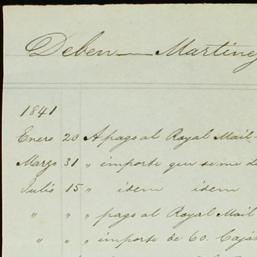 Deben Martinez
1841
Enero 20 A pago al Royal Mail
Marzo 31 " importe que se me
Julio 15 " idem idem
" " pago al Royal Mail
" " importe de 60. Cajas